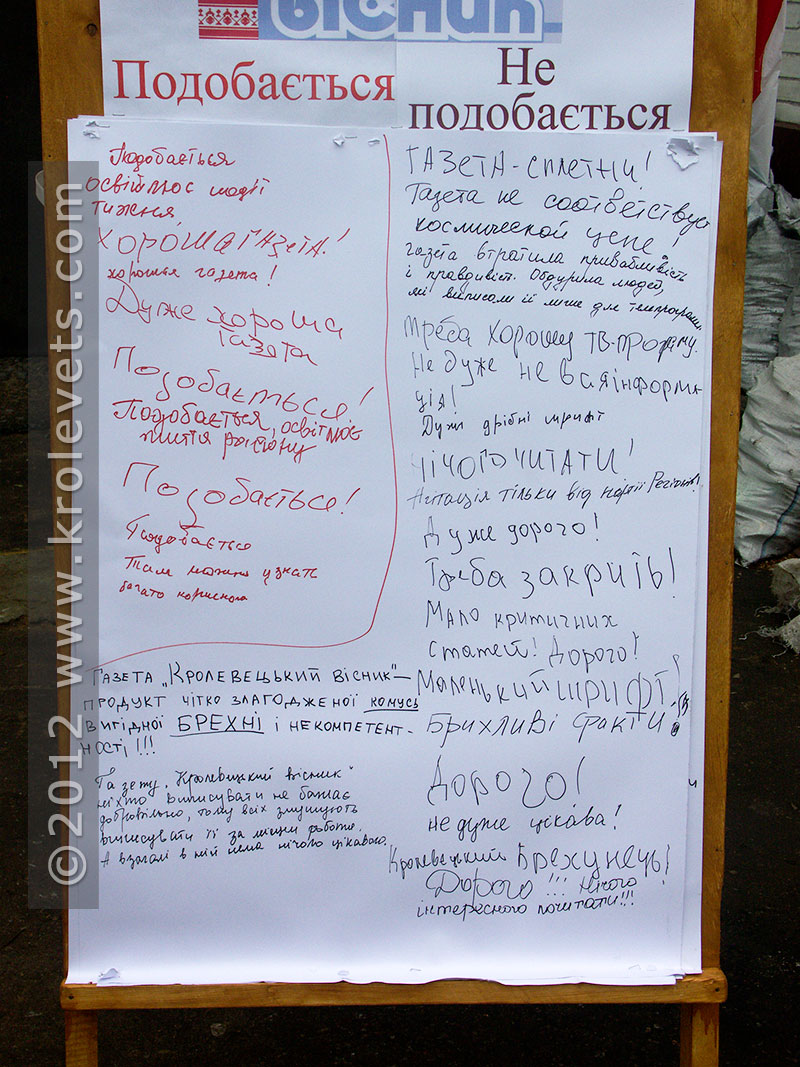 вісник
Подобається
Не
подобається
Подобається
освітлює події
тижня
ХОРОША ГАЗЕТА!
хороша газета!
Дуже хороша
газета
Подобається!
Подобається, освітлює
життя району
Подобається!
Подобається
Там можна узнать
багато корисного
ГАЗЕТА "КРОЛЕВЕЦЬКИЙ ВІСНИК" –
ПРОДУКТ ЧІТКО ЗЛАГОДЖЕНОЇ КОМУСЬ
ВИГІДНОЇ БРЕХНІ І НЕКОМПЕТЕНТ-
НОСТІ!!!
Газету "Кролевецький вісник"
ніхто виписувати не бажає
добровільно, тому всіх змушують
виписувати її за місцем роботи.
А взагалі в ній нема нічого цікавого.
ГАЗЕТА - СПЛЕТНИ!
Газета не соответствует
космической цене!
газета втратила привабливість
і правдивість. Обдурила людей,
які виписали її лише для телепрограми.
Треба хорошу ТВ-програму.
Не дуже не вся інформа
ція!
Дуже дрібні шрифт
НІЧОГО ЧИТАТИ!
Агітація тільки від партії Регіонів!
Дуже дорого!
Треба закрить!
Мало критичних
статей! Дорого!
Маленький шрифт!
Брихливі факти!
Дорого!
не дуже цікава!
Кролевецький Брехунець!
Дорого!!! Нічого
інтересного почитати!!!
©2012 www.krolevets.com